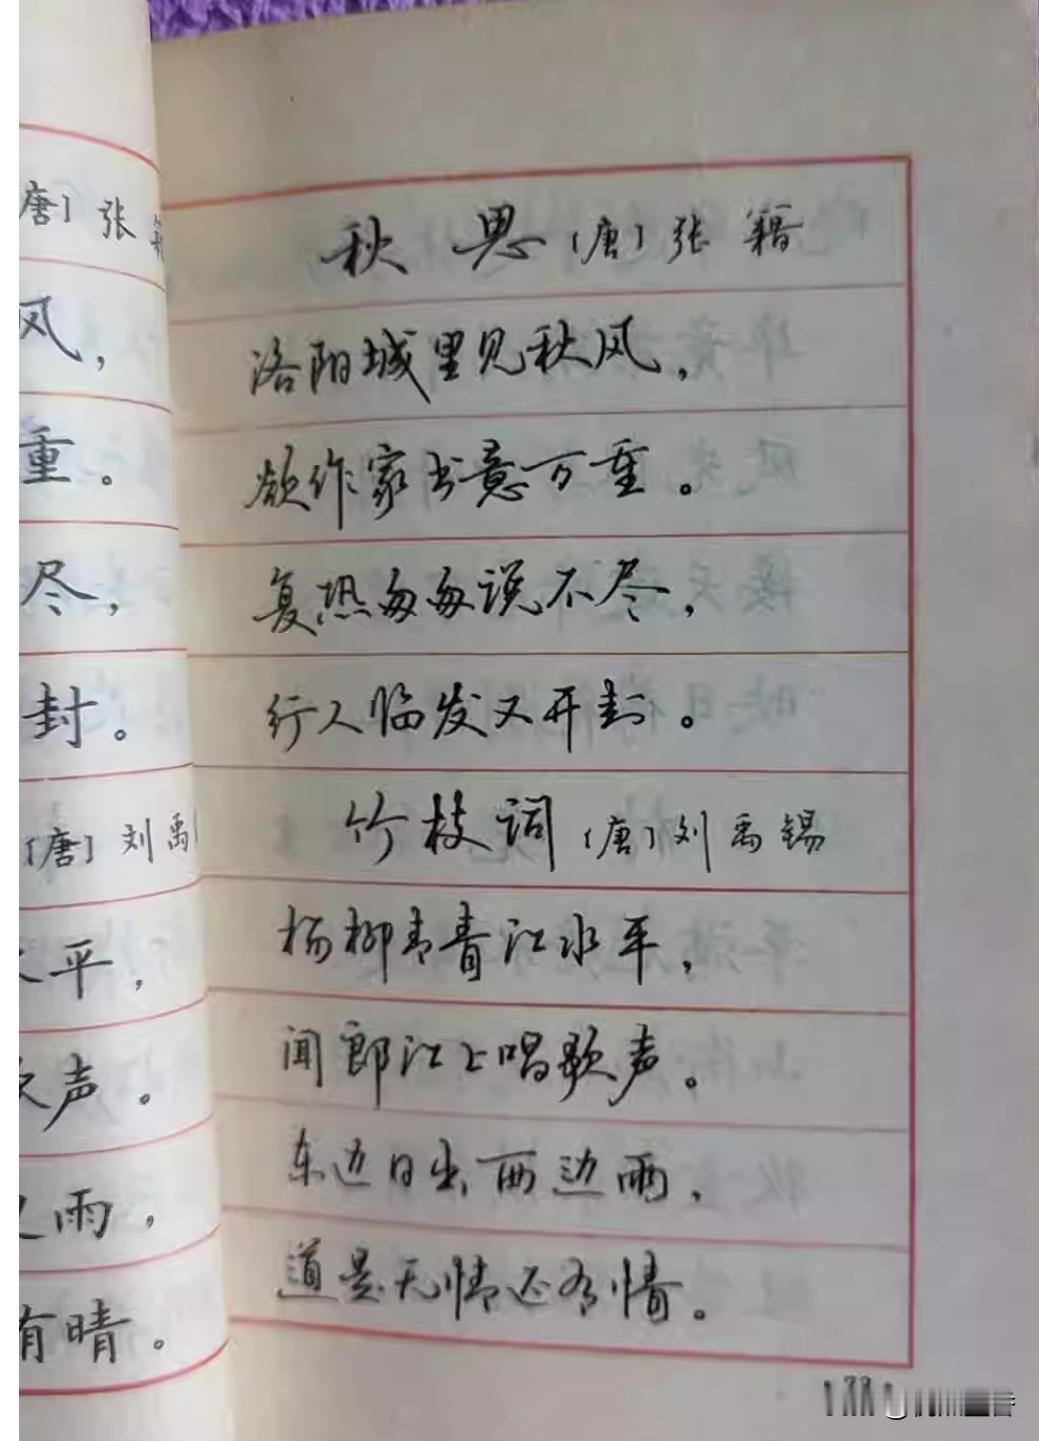 唐〕张籍
风,
重。
尽,
封。
〔唐〕刘禹
平,
声。
雨,
有晴。
秋思〔唐〕张籍
洛阳城里见秋风,
欲作家书意万重。
复恐匆匆说不尽,
行人临发又开封。
竹枝词〔唐〕刘禹锡
杨柳青青江水平,
闻郎江上唱歌声。
东边日出西边雨,
道是无情还有情。